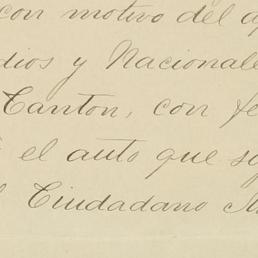 con motivo del a
dios y Nacionale
Canton, con fe
el auto que s
Ciudadano